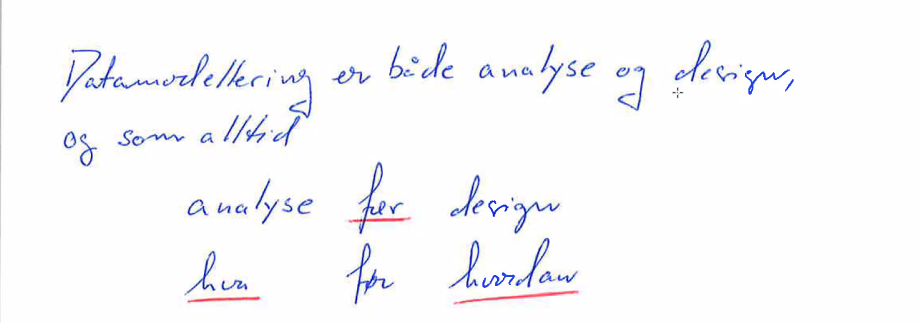 Datamodellering er både analyse og design,
og som alltid
analyse før design
hva før hvordan